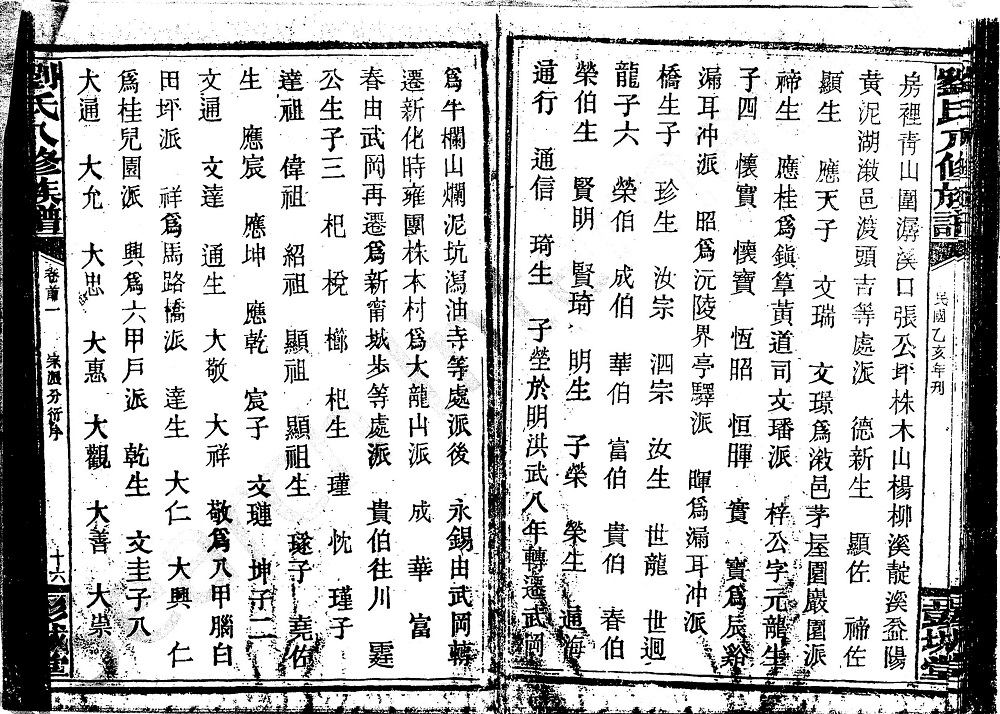 劉氏八修族譜
民國乙亥年刊
彭城堂
房裡青山圍潺溪口張公坪株木山楊柳溪靛溪益陽
黃泥湖漵邑渡頭吉等處派 德新生 顯佐 禘佐
顯生 應天子 文瑞 文璟爲漵邑茅屋圍巖圍派
禘生 應桂爲鎭筸黃道司文璠派 梓公字元龍生
子四 懷實 懷寶 恆昭 恒暉 實 寶爲辰谿
漏耳冲派 昭爲沅陵界亭驛派 暉爲漏耳冲派
橋生子 珍生 汝宗 泗宗 汝生 世龍 世週
龍子六 榮伯 成伯 華伯 富伯 貴伯 春伯
榮伯生 賢明 賢琦 明生 子榮 榮生 通海
通行 通信 琦生 子塋於明洪武八年轉遷武岡
爲牛欄山爛泥坑潟油寺等處派後 永錫由武岡轉
遷新化時雍團株木村爲大龍山派 成 華 富
春由武岡再遷爲新甯城步等處派 貴伯往川 霆
公生子三 杞 梲 櫛 杞生 瑾 忱 瑾子
達祖 偉祖 紹祖 顯祖 顯祖生 璲子 堯佐
生 應宸 應坤 應乾 宸子 文璉 坤子二
文通 文達 通生 大敬 大祥 敬爲八甲腦白
田坪派 祥爲馬路橋派 達生 大仁 大興 仁
爲桂兒園派 興爲六甲戶派 乾生 文圭子八
大通 大允 大忠 大惠 大觀 大善 大崇
劉氏八修族譜
卷首一 衆派分衍序
十六
彭城堂